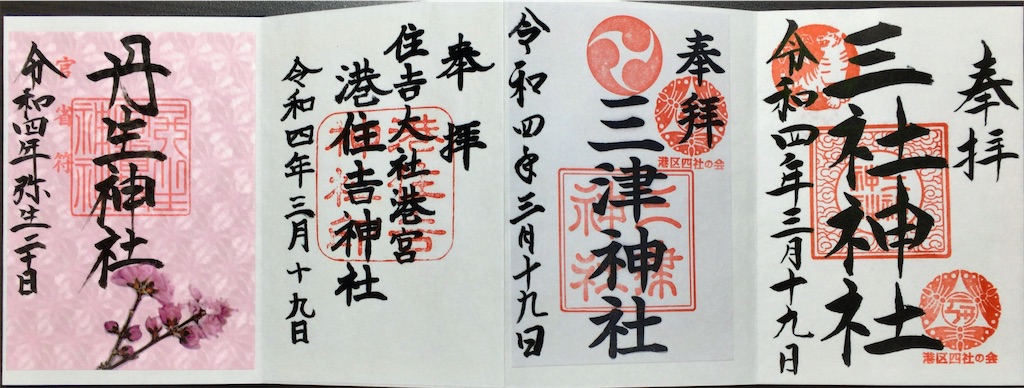 奉拝
三社神社
令和四年三月十九日
港区四社の会
奉拝
港区四社の会
三津神社
令和四年三月十九日
奉拝
住吉大社港宮
港住吉神社
令和四年三月十九日
丹生神社
官省符
令和四年弥生二十日